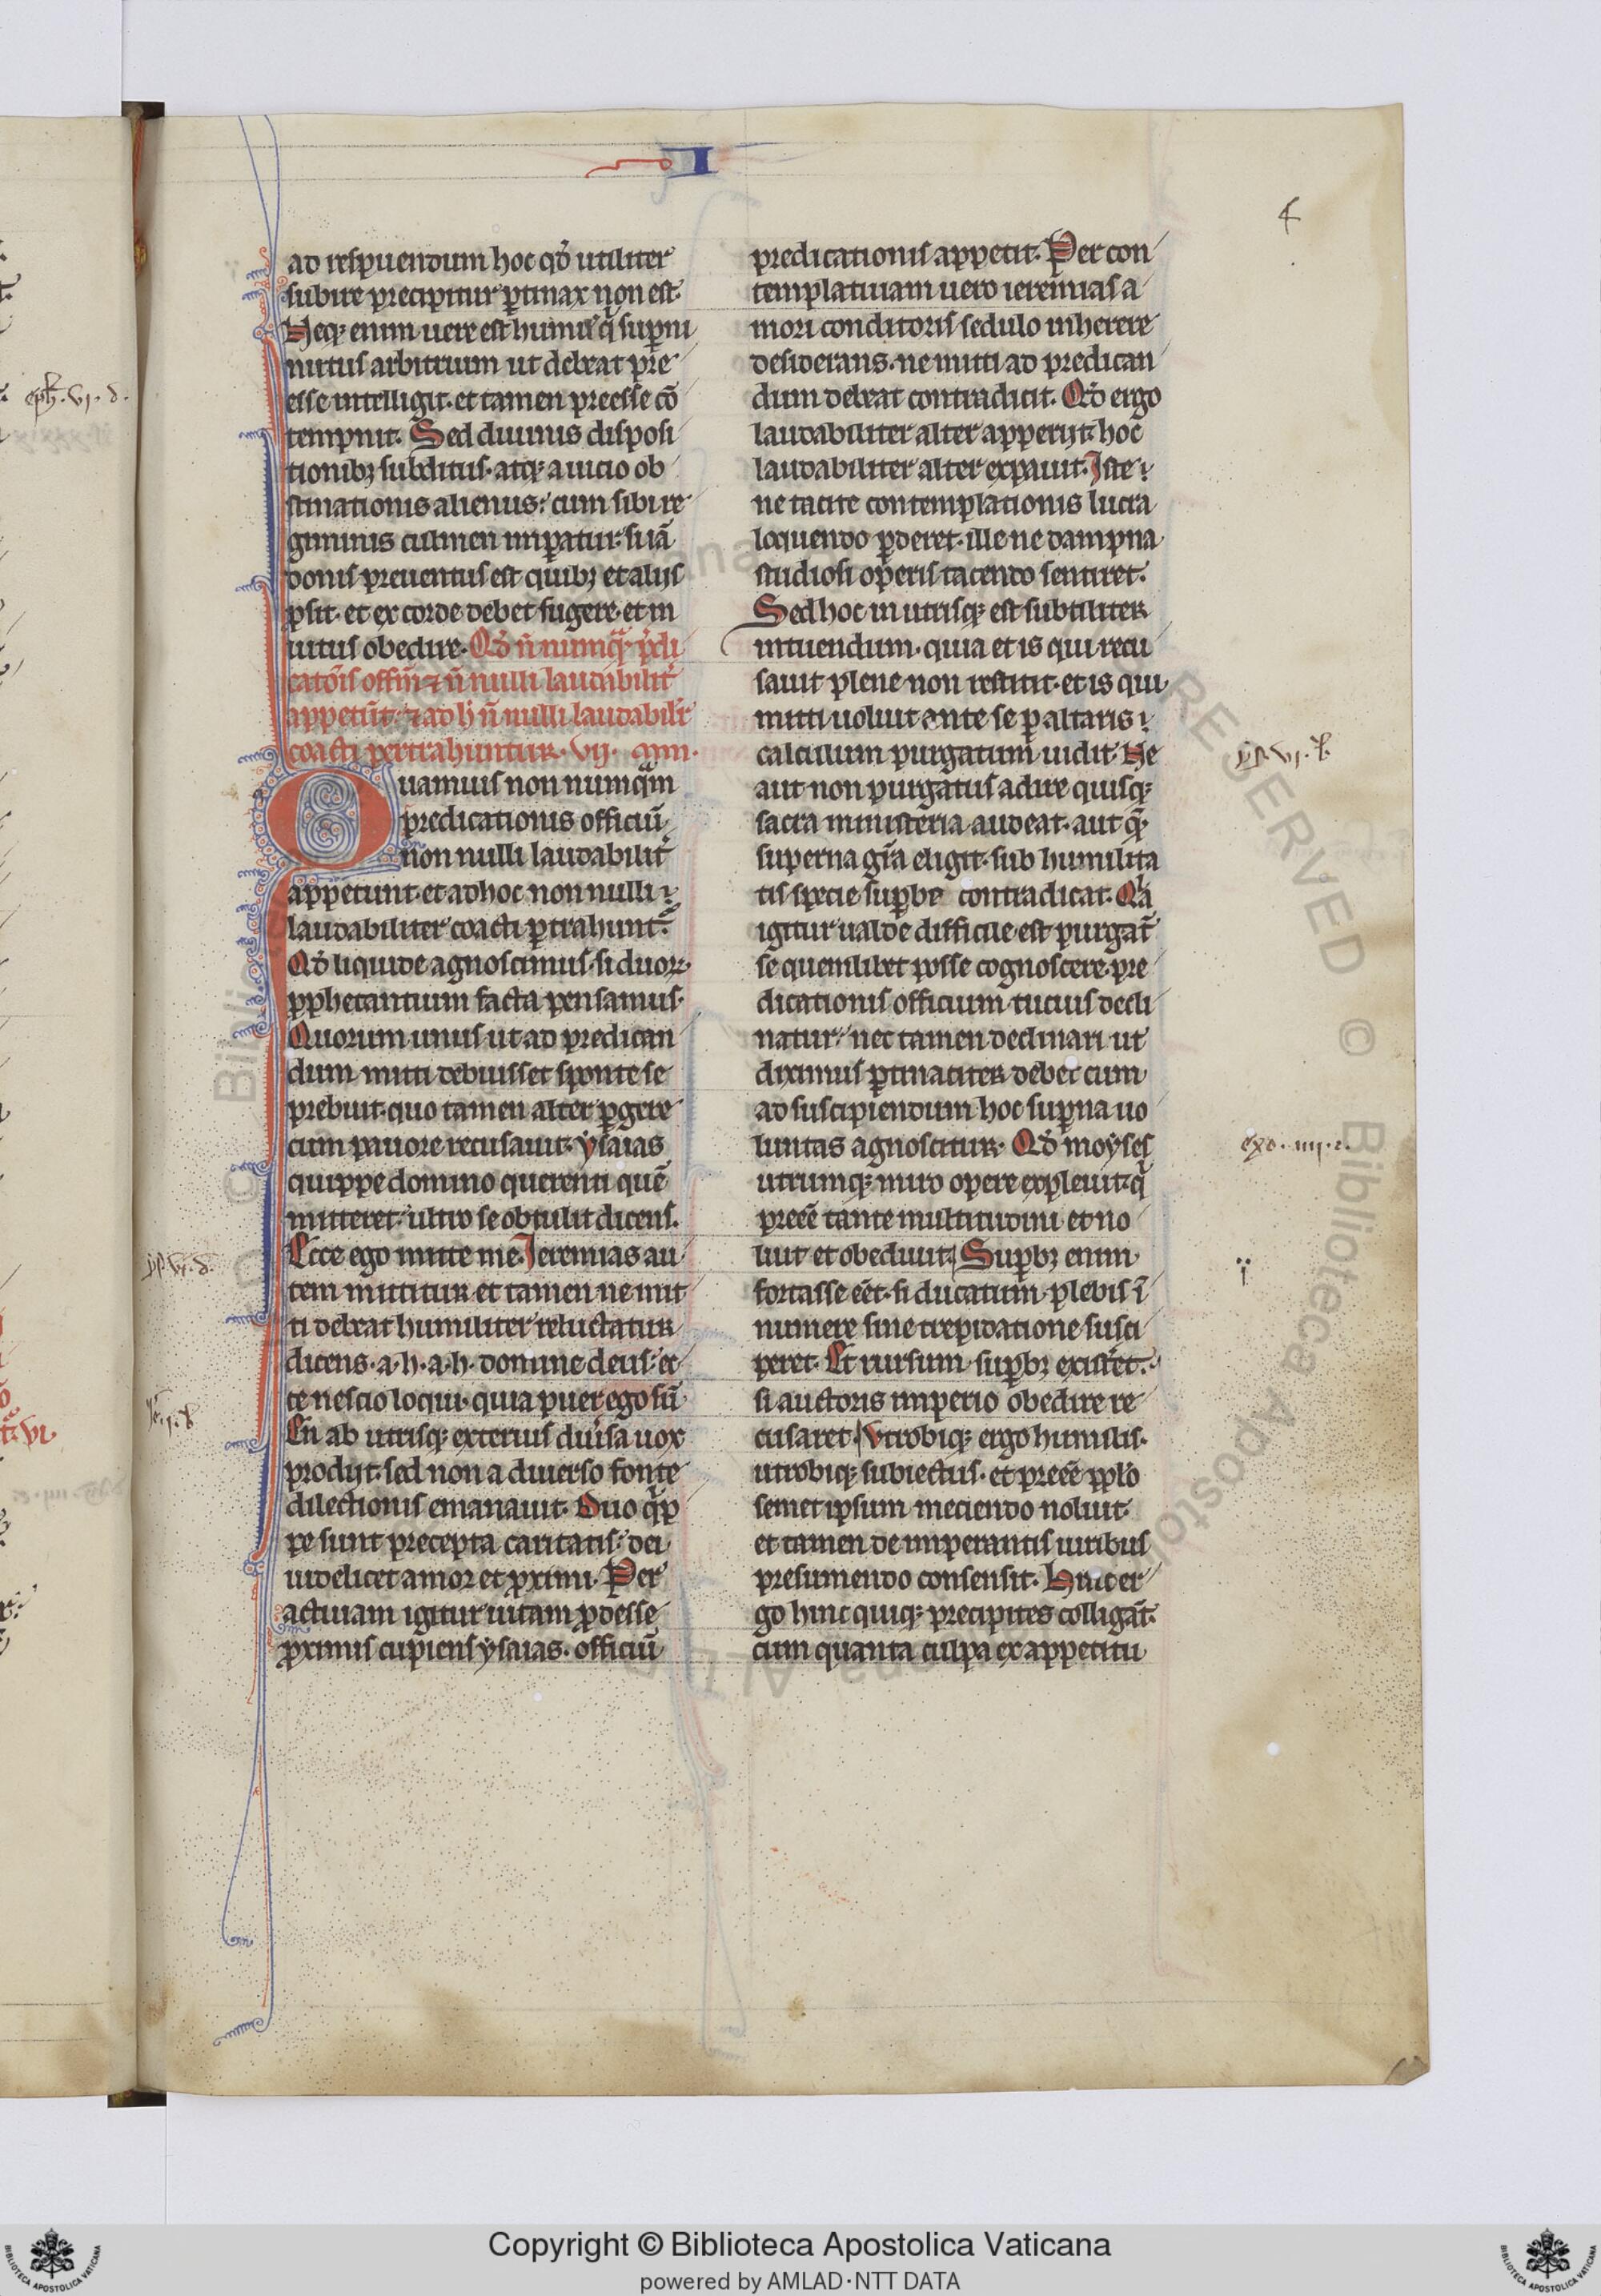 I
4
ad respuendum hoc qđ utiliter
subire precipitur ꝑtinax non est.
Neqꝫ enim uere est humił q̇ suꝑni
nutus arbitrium ut debeat pre
esse intelligit. et tamen preesse cō
tempnit. Sed diuinis disposi
tionibꝫ subditus. atqꝫ a uicio ob
stinationis alienus: cum sibi re
giminis culmen imꝑatur. si iā
donis preuentus est quibꝫ et alijs
ꝓsit. et ex corde debet fugere. et in
uitus obedire. Qđ ñ numqᷓ p̄di
catōis offm̄ ⁊ ñ nulli laudabilit̄
appetūt. ⁊ ad ħ ñ nulli laudabilit̄
coacti pertrahuntur. vij.
Quamuis non numqᷓm
predicationis officiū
non nulli laudabilit̄
appetunt. et ad hoc non nulli
laudabiliter coacti ꝑtrahunt̄.
Qđ liquide agnoscimus. si duoꝝ
ꝓphetantium facta pensamus.
Quorum unus ut ad predican
dum mitti debuisset sponte se
prebuit. quo tamen alter ꝑgere
cum pauore recusauit. ysaias
quippe domino querenti quē
mitteret. ultro se obtulit dicens.
Ecce ego mitte me. Jeremias au
tem mittitur et tamen ne mit
ti debeat humiliter reluctatur
dicens. a. h. a. h. domine deus: ec
ce nescio loqui. quia puer ego sū.
En ab utrisqꝫ exterius diuˀsa uox
prodijt. sed non a diuerso fonte
dilectionis emanauit. Duo q̇p
pe sunt precepta caritatis: dei
uidelicet amor et ꝓximi. Per
actiuam igitur uitam ꝓdesse
ꝓximis cupiens ysaias. officiū
predicationis appetit. Per con
templatiuam uero ieremias a
mori conditoris sedulo inherere
desiderans. ne mitti ad predican
dum debeat contradicit. Qđ ergo
laudabiliter alter apperijt. hoc
laudabiliter alter expauit. Iste
ne tacite contemplationis lucra
loquendo ꝑderet. ille ne dampna
studiosi operis tacendo sentiret.
Sed hoc in utrisqꝫ est subtiliter
intuendum. quia et is qui recu
sauit plene non restitit. et is qui
mitti uoluit ante se ꝑ altaris
calculum purgatum uidit. Ne
aut non purgatus adire quisqꝫ
sacra ministeria audeat. aut qᷓ
superna grā eligit. sub humilita
tis specie suꝑbe contradicat. Qa
igitur ualde difficile est purgat̄
se quemlibet posse cognoscere. pre
dicationis officium tucius decli
natur: nec tamen declinari ut
diximus ꝑtinaciter debet cum
ad suscipiendum hoc suꝑna uo
luntas agnoscitur. Qđ moyses
utrumqꝫ miro opere expleuit. q̇
preēe tante multitudini et no
luit et obediuit. Suꝑbꝫ enim
fortasse eēt. si ducatum plebis ī
numere sine trepidatione susci
peret. Et rursum suꝑbꝫ existeret.
si auctoris imperio obedire re
cusaret. Vtrobiqꝫ ergo humilis.
utrobiqꝫ subiectus. et preēe pp̄lo
semet ipsum meciendo noluit.
et tamen de imperantis uiribus
presumendo consensit. Hinc er
go hinc quiqꝫ precipites colligāt.
cum quanta culpa ex appetitu
eph. vj. d.
ys. vj. d.
ie. j. b
ys. vj. b.
exo. iiij. c.
Copyright © Biblioteca Apostolica Vaticana
powered by AMLAD·NTT DATA